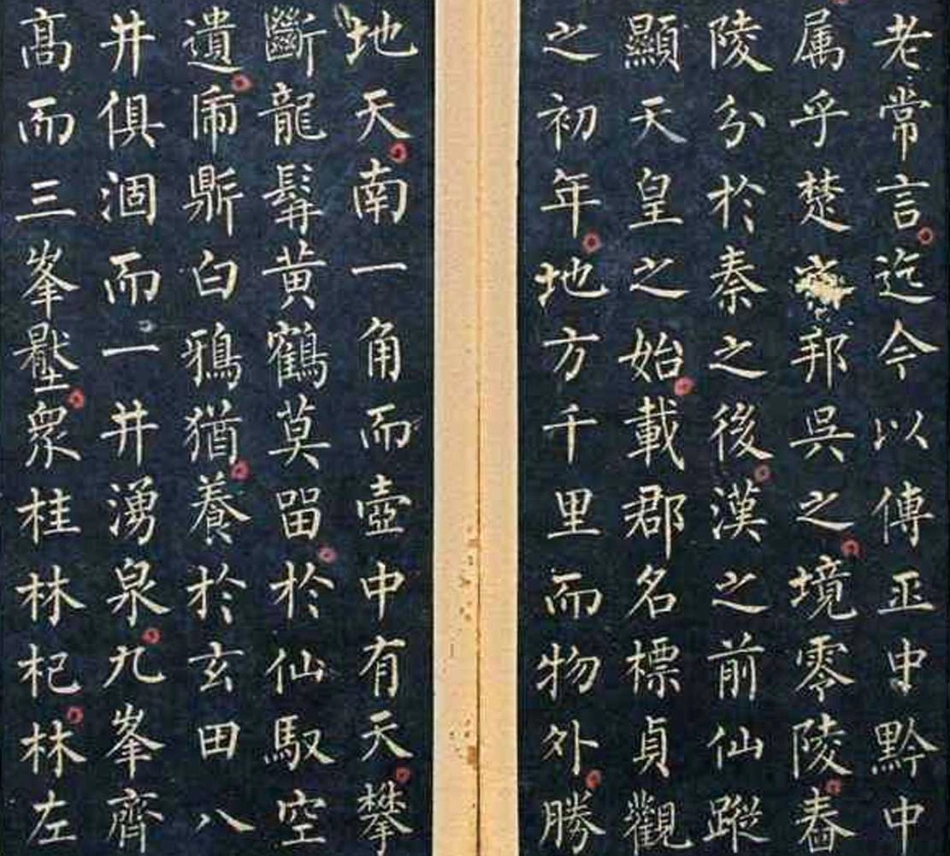 老常言迄今以傳正中黔中
属乎楚邦吳之境零陵舂
陵分於秦之後漢之前仙蹤
顯天皇之始載郡名標貞觀
之初年地方千里而物外勝
地天南一角而壺中有天攀
斷龍髯黄鶴莫留於仙馭空
遺鼎白鴉猶養於玄田八
井俱涸而一井湧泉九峯齊
髙而三峯壓衆桂林杞林左